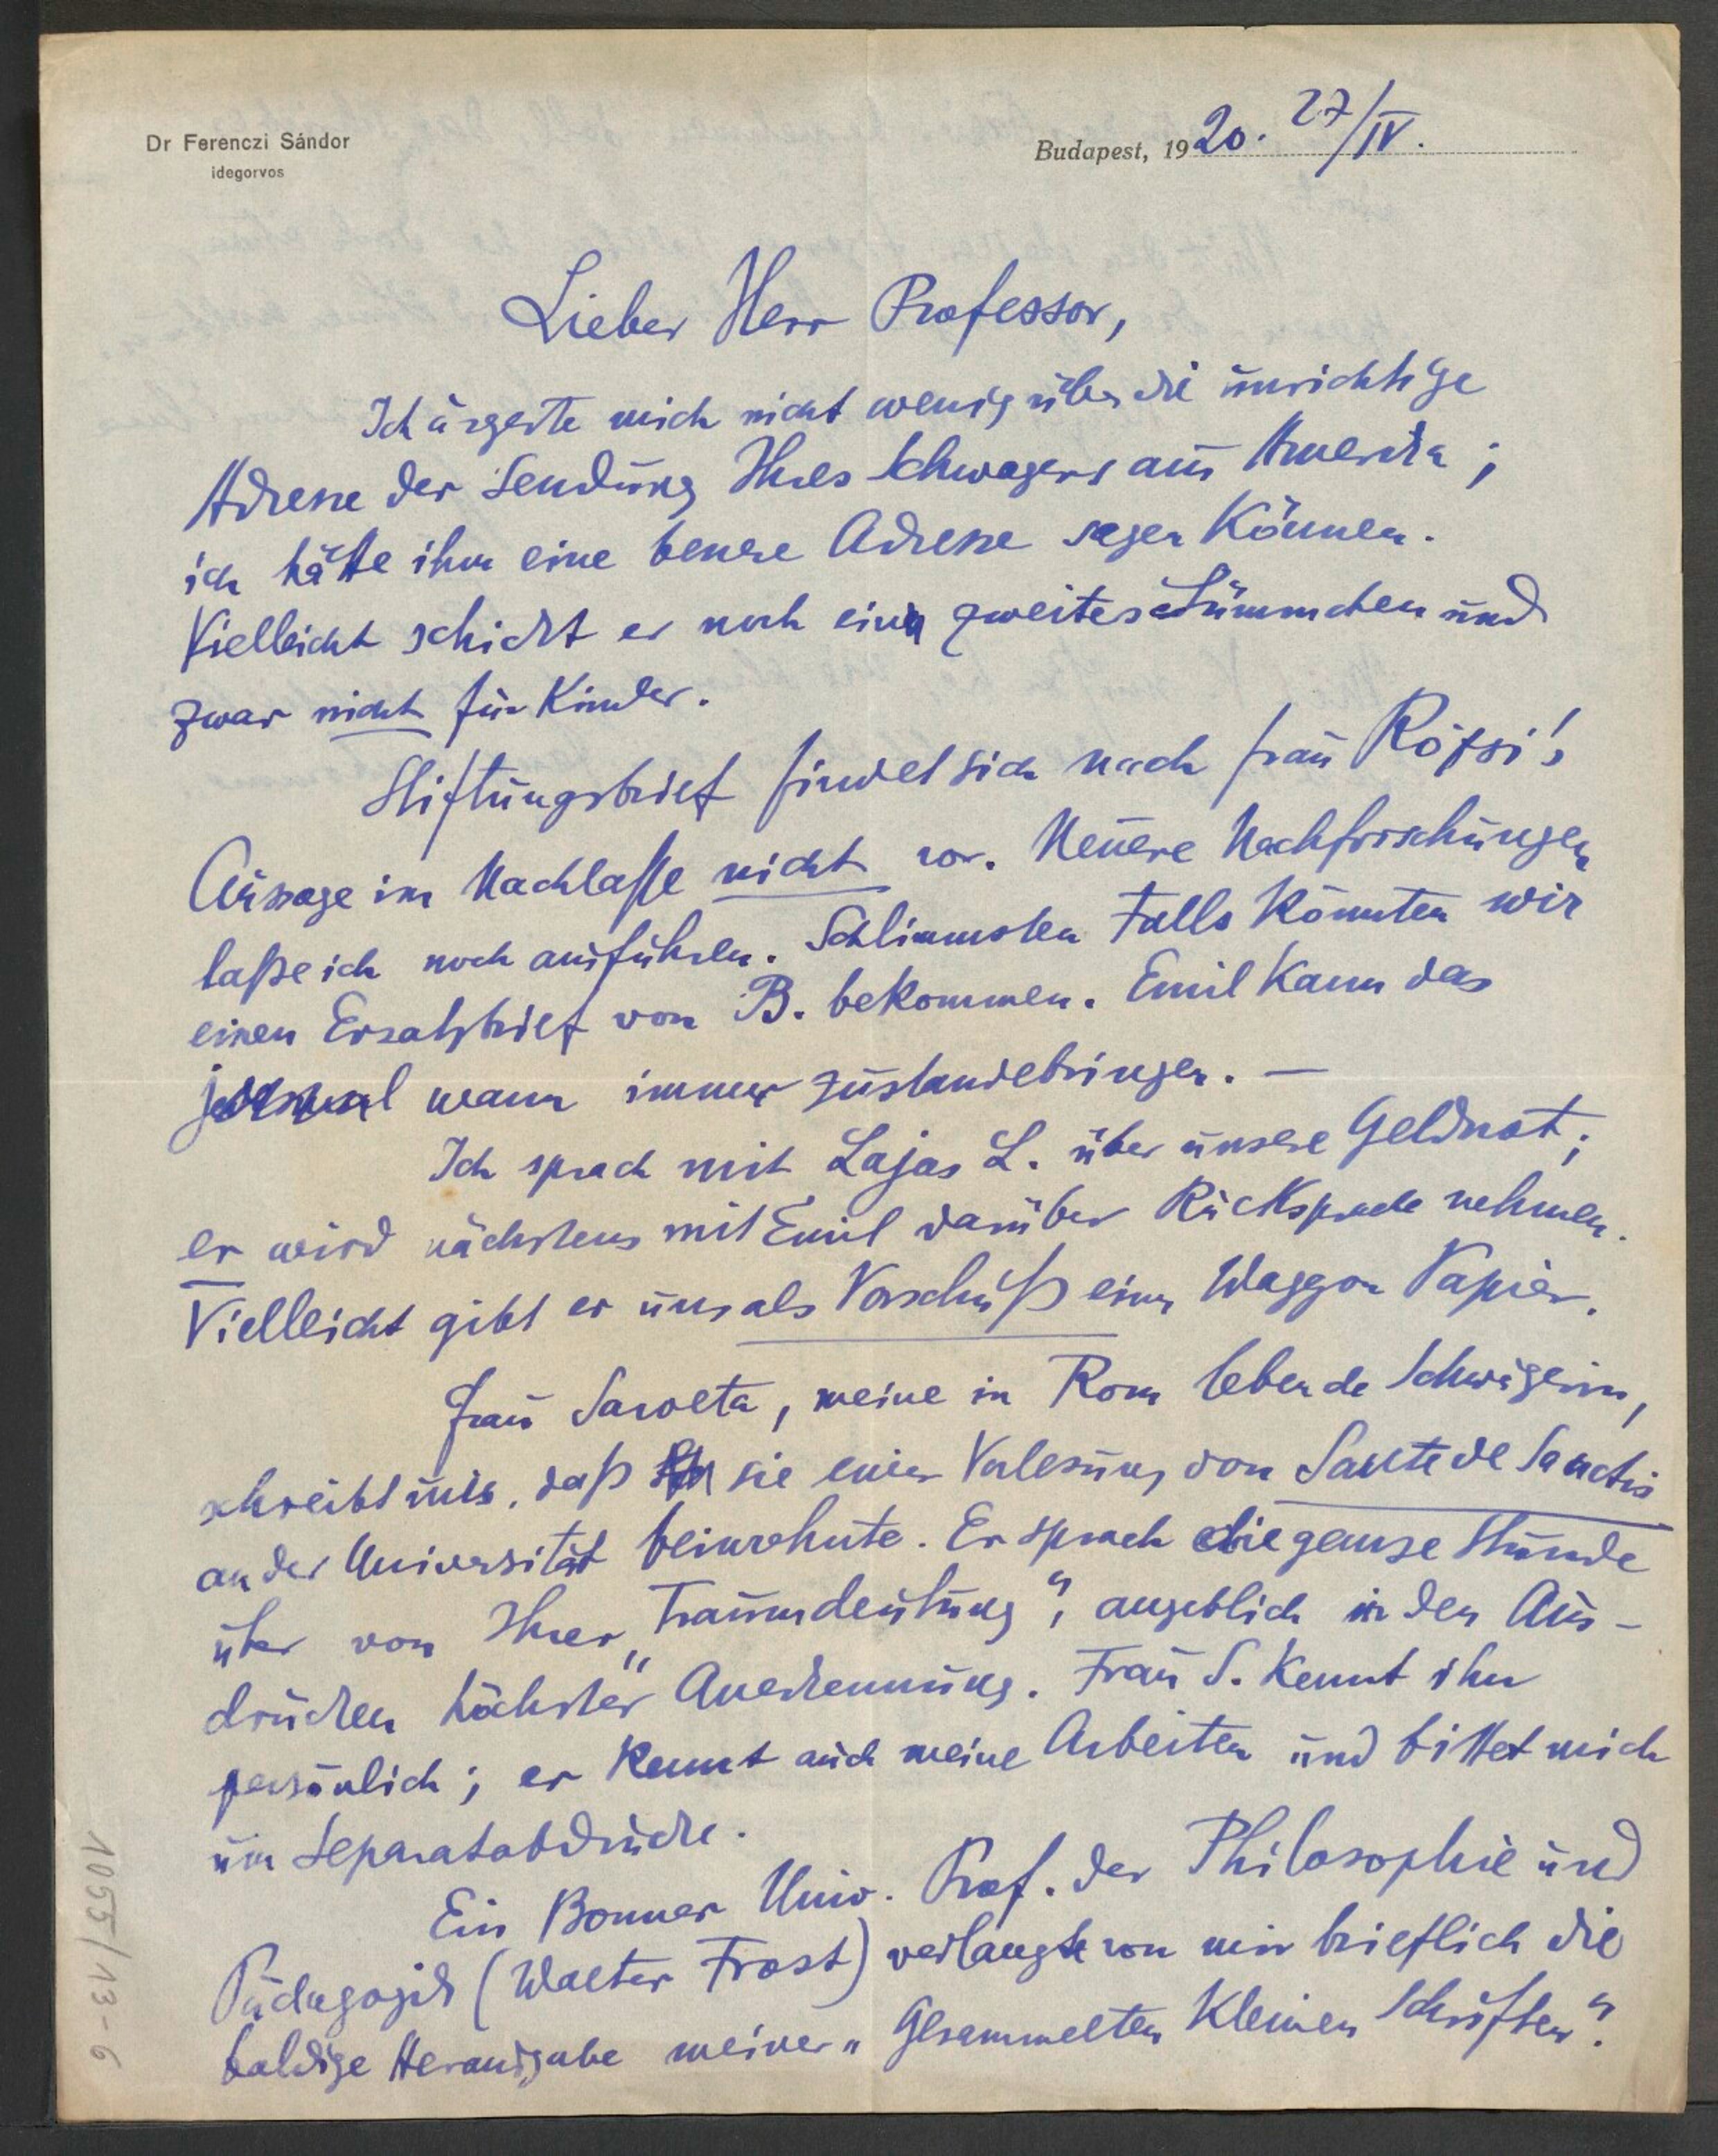 Dr Ferenczi Sándor
idegorvos
Budapest, 1920. 27/IV.
Lieber Herr Professor,
Ich ärgerte mich nicht wenig über die unrichtige
Adresse der Sendung Ihres Schwagers aus Amerika;
ich hätte ihm eine bessere Adresse sagen können.
Vielleicht schickt er noch ein zweites Sümmchen und
zwar nicht für Kinder.
Stiftungsbrief findet sich nach Frau Rózsi's
Aussage im Nachlaße nicht vor. Neuere Nachforschungen
laße ich noch ausführen. Schlimmsten Falls könnten wir
einen Ersatzbrief von B. bekommen. Emil kann das
wann immer zustandebringen. —
Ich sprach mit Lajos L. über unsere Geldnot;
er wird nächstens mit Emil darüber Rücksprache nehmen.
Vielleicht gibt er uns als Vorschuß einen Waggon Papier.
Frau Sarolta, meine in Rom lebende Schwägerin,
schreibt uns, daß sie einer Vorlesung von Sante de Sanctis
an der Universität beiwohnte. Er sprach die ganze Stunde
über von Ihrer „Traumdeutung“, angeblich in den Aus-
drücken höchster Anerkennung. Frau S. kennt ihn
persönlich; er kennt auch meine Arbeiten und bittet mich
um Separatabdrücke.
Ein Bonner Univ. Prof. der Philosophie und
Pädagogik (Walter Frost) verlangte von mir brieflich die
baldige Herausgabe meiner „Gesammelten Kleinen Schriften“.
1055/13-6